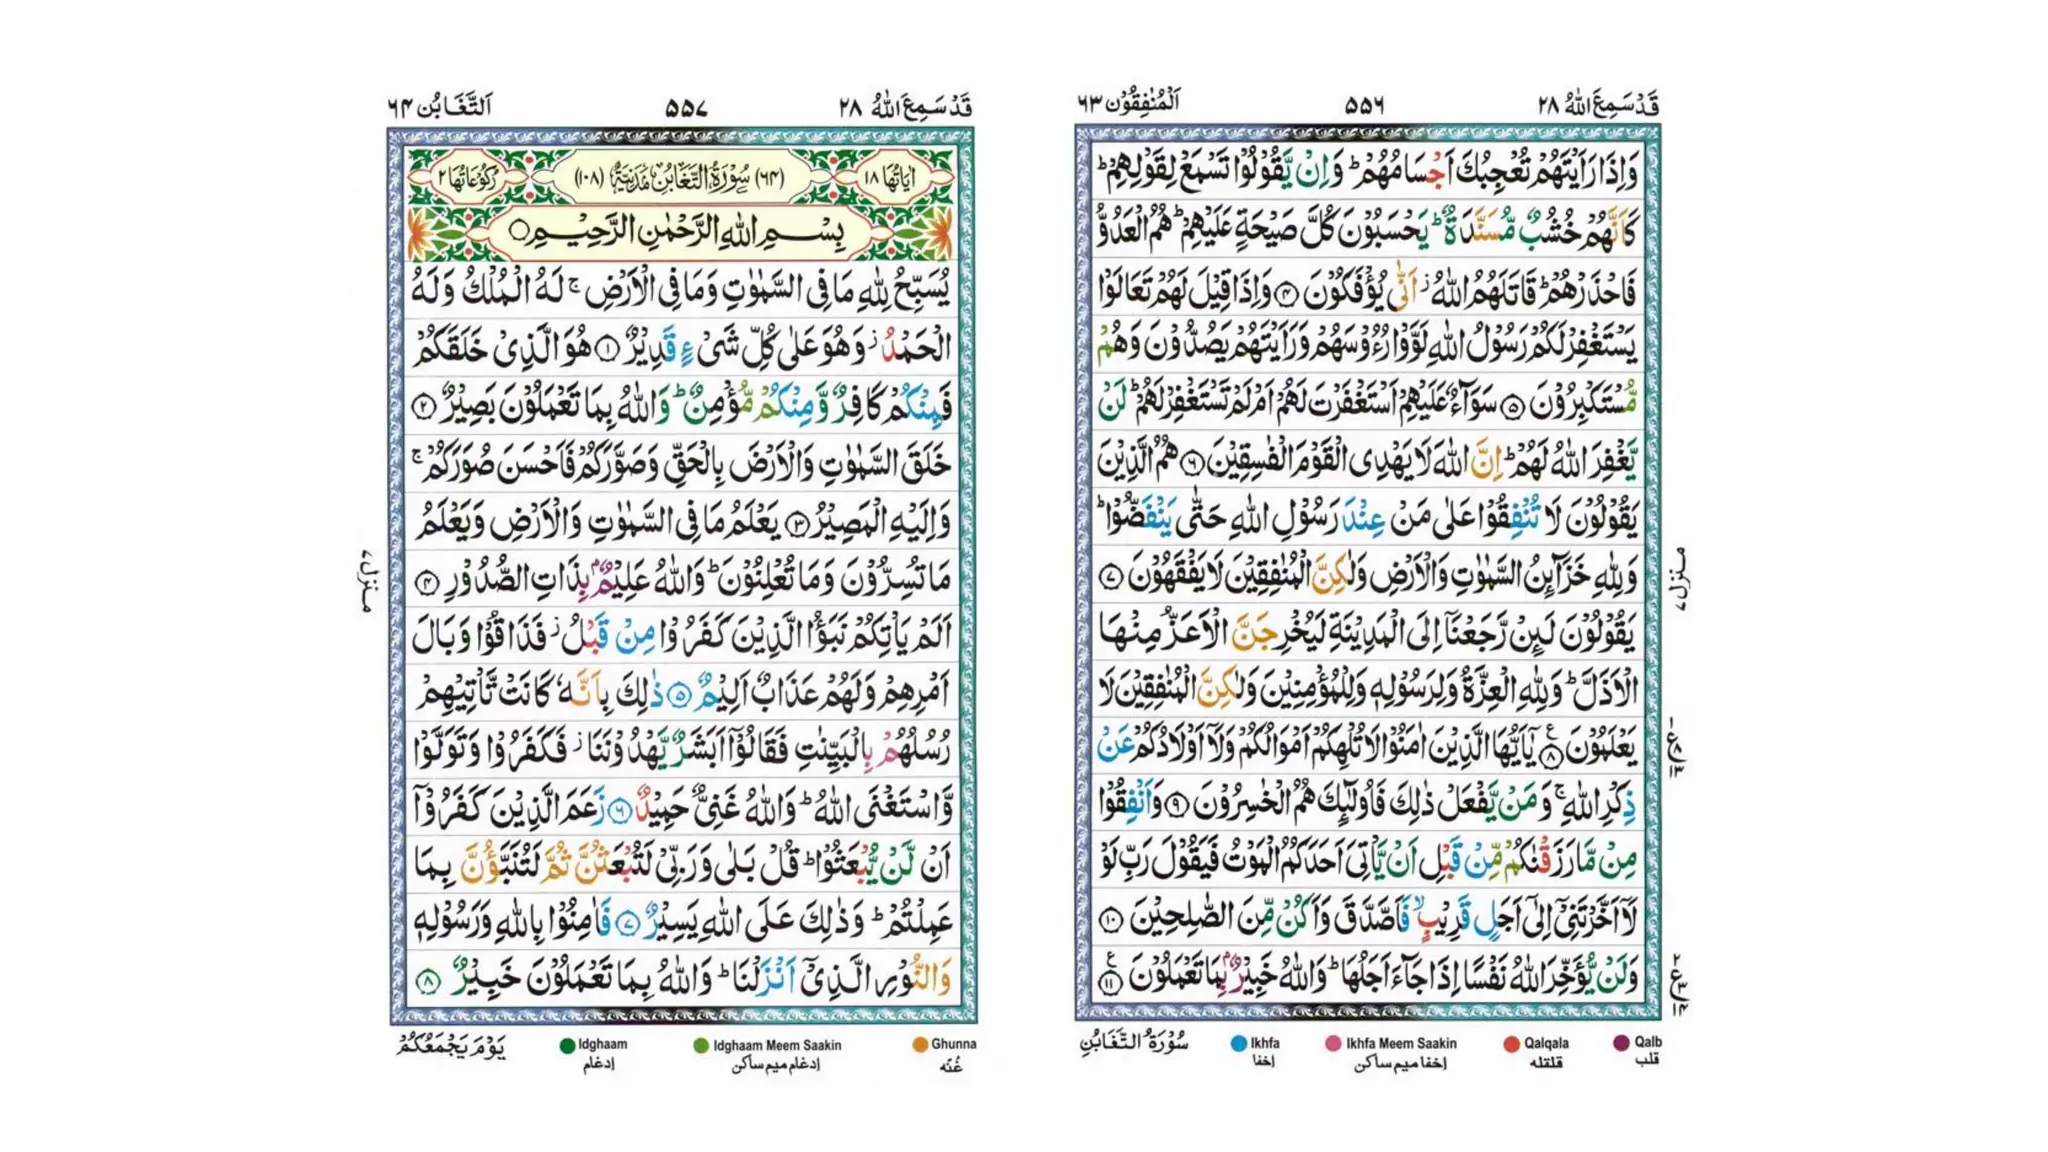 قَدْ سَمِعَ اللّٰهُ ٢٨
٥٥٦
اَلْمُنٰفِقُوْن ٦٣
وَاِذَا رَاَيْتَهُمْ تُعْجِبُكَ اَجْسَامُهُمْ ؕ وَاِنْ يَّقُوْلُوْا تَسْمَعْ لِقَوْلِهِمْ ؕ
كَاَنَّهُمْ خُشُبٌ مُّسَنَّدَةٌ ؕ يَحْسَبُوْنَ كُلَّ صَيْحَةٍ عَلَيْهِمْ ؕ هُمُ الْعَدُوُّ
فَاحْذَرْهُمْ ؕ قَاتَلَهُمُ اللّٰهُ ؗ اَنّٰى يُؤْفَكُوْنَ ۝٤ وَاِذَا قِيْلَ لَهُمْ تَعَالَوْا
يَسْتَغْفِرْ لَكُمْ رَسُوْلُ اللّٰهِ لَوَّوْا رُءُوْسَهُمْ وَرَاَيْتَهُمْ يَصُدُّوْنَ وَهُمْ
مُّسْتَكْبِرُوْنَ ۝٥ سَوَآءٌ عَلَيْهِمْ اَسْتَغْفَرْتَ لَهُمْ اَمْ لَمْ تَسْتَغْفِرْ لَهُمْ ؕ لَنْ
يَّغْفِرَ اللّٰهُ لَهُمْ ؕ اِنَّ اللّٰهَ لَا يَهْدِى الْقَوْمَ الْفٰسِقِيْنَ ۝٦ هُمُ الَّذِيْنَ
يَقُوْلُوْنَ لَا تُنْفِقُوْا عَلٰى مَنْ عِنْدَ رَسُوْلِ اللّٰهِ حَتّٰى يَنْفَضُّوْا ؕ
وَلِلّٰهِ خَزَآئِنُ السَّمٰوٰتِ وَالْاَرْضِ وَلٰكِنَّ الْمُنٰفِقِيْنَ لَا يَفْقَهُوْنَ ۝٧
يَقُوْلُوْنَ لَئِنْ رَّجَعْنَاۤ اِلَى الْمَدِيْنَةِ لَيُخْرِجَنَّ الْاَعَزُّ مِنْهَا
الْاَذَلَّ ؕ وَلِلّٰهِ الْعِزَّةُ وَلِرَسُوْلِهٖ وَلِلْمُؤْمِنِيْنَ وَلٰكِنَّ الْمُنٰفِقِيْنَ لَا
يَعْلَمُوْنَ ۝٨ ع يٰۤاَيُّهَا الَّذِيْنَ اٰمَنُوْا لَا تُلْهِكُمْ اَمْوَالُكُمْ وَلَاۤ اَوْلَادُكُمْ عَنْ
ذِكْرِ اللّٰهِ ۚ وَمَنْ يَّفْعَلْ ذٰلِكَ فَاُولٰٓئِكَ هُمُ الْخٰسِرُوْنَ ۝٩ وَاَنْفِقُوْا
مِنْ مَّا رَزَقْنٰكُمْ مِّنْ قَبْلِ اَنْ يَّاْتِىَ اَحَدَكُمُ الْمَوْتُ فَيَقُوْلَ رَبِّ لَوْ
لَاۤ اَخَّرْتَنِىْۤ اِلٰٓى اَجَلٍ قَرِيْبٍ ۙ فَاَصَّدَّقَ وَاَكُنْ مِّنَ الصّٰلِحِيْنَ ۝١٠
وَلَنْ يُّؤَخِّرَ اللّٰهُ نَفْسًا اِذَا جَآءَ اَجَلُهَا ؕ وَاللّٰهُ خَبِيْرٌۢ بِمَا تَعْمَلُوْنَ ۝١١ ع
منزل ٧
سُوْرَةُ التَّغَابُنِ
Ikhfa
إخفا
Ikhfa Meem Saakin
إخفا ميم ساكن
Qalqala
قلقله
Qalb
قلب
قَدْ سَمِعَ اللّٰهُ ٢٨
٥٥٧
اَلتَّغَابُن ٦٤
اٰيَاتُهَا ١٨
(٦٤) سُوْرَةُ التَّغَابُنِ مَدَنِيَّةٌ (١٠٨)
رُكُوْعَاتُهَا ٢
بِسْمِ اللّٰهِ الرَّحْمٰنِ الرَّحِيْمِ
يُسَبِّحُ لِلّٰهِ مَا فِى السَّمٰوٰتِ وَمَا فِى الْاَرْضِ ۚ لَهُ الْمُلْكُ وَلَهُ
الْحَمْدُ ؗ وَهُوَ عَلٰى كُلِّ شَىْءٍ قَدِيْرٌ ۝١ هُوَ الَّذِىْ خَلَقَكُمْ
فَمِنْكُمْ كَافِرٌ وَّمِنْكُمْ مُّؤْمِنٌ ؕ وَاللّٰهُ بِمَا تَعْمَلُوْنَ بَصِيْرٌ ۝٢
خَلَقَ السَّمٰوٰتِ وَالْاَرْضَ بِالْحَقِّ وَصَوَّرَكُمْ فَاَحْسَنَ صُوَرَكُمْ ۚ
وَاِلَيْهِ الْمَصِيْرُ ۝٣ يَعْلَمُ مَا فِى السَّمٰوٰتِ وَالْاَرْضِ وَيَعْلَمُ
مَا تُسِرُّوْنَ وَمَا تُعْلِنُوْنَ ؕ وَاللّٰهُ عَلِيْمٌۢ بِذَاتِ الصُّدُوْرِ ۝٤
اَلَمْ يَاْتِكُمْ نَبَؤُا الَّذِيْنَ كَفَرُوْا مِنْ قَبْلُ ؗ فَذَاقُوْا وَبَالَ
اَمْرِهِمْ وَلَهُمْ عَذَابٌ اَلِيْمٌ ۝٥ ذٰلِكَ بِاَنَّهٗ كَانَتْ تَّاْتِيْهِمْ
رُسُلُهُمْ بِالْبَيِّنٰتِ فَقَالُوْۤا اَبَشَرٌ يَّهْدُوْنَنَا ؗ فَكَفَرُوْا وَتَوَلَّوْا
وَّاسْتَغْنَى اللّٰهُ ؕ وَاللّٰهُ غَنِىٌّ حَمِيْدٌ ۝٦ زَعَمَ الَّذِيْنَ كَفَرُوْۤا
اَنْ لَّنْ يُّبْعَثُوْا ؕ قُلْ بَلٰى وَرَبِّىْ لَتُبْعَثُنَّ ثُمَّ لَتُنَبَّؤُنَّ بِمَا
عَمِلْتُمْ ؕ وَذٰلِكَ عَلَى اللّٰهِ يَسِيْرٌ ۝٧ فَاٰمِنُوْا بِاللّٰهِ وَرَسُوْلِهٖ
وَالنُّوْرِ الَّذِىْۤ اَنْزَلْنَا ؕ وَاللّٰهُ بِمَا تَعْمَلُوْنَ خَبِيْرٌ ۝٨
منزل ٧
يَوْمَ يَجْمَعُكُمْ
Idghaam
إدغام
Idghaam Meem Saakin
إدغام ميم ساكن
Ghunna
غُنّه